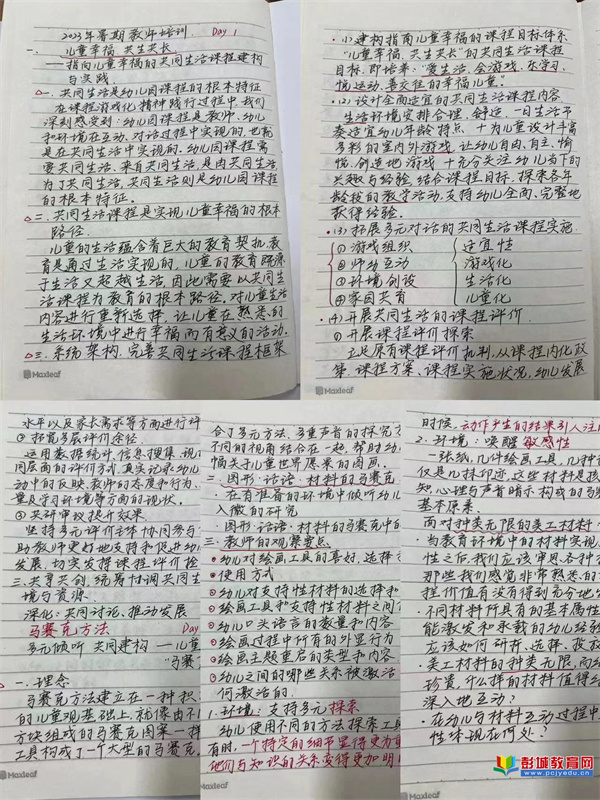 2023年暑期教师培训 Day 1
一、儿童幸福 共生共长
——指向儿童幸福的共同生活课程建构
与实践
一、共同生活是幼儿园课程的根本特征
在课程游戏化精神践行过程中,我们
深刻感受到:幼儿园课程是教师、幼儿
和环境在互动、对话过程中实现的,也就
是在共同生活中实现的,幼儿园课程需
要共同生活,来自共同生活,是由共同生活、
为了共同生活,共同生活则是幼儿园课程
的根本特征。
二、共同生活课程是实现儿童幸福的根本
路径。
儿童的生活蕴含着巨大的教育契机,教
育是通过生活实现的,儿童的教育既源
于生活又超越生活,因此需要以共同生
活课程为教育的根本路径,对儿童生活
内容进行重新选择,让儿童在熟悉的
生活环境中进行幸福而有意义的活动。
三、系统架构,完善共同生活课程框架
Maxleaf
(1)建构指南儿童幸福的课程目标体系
“儿童幸福、共生共长”的共同生活课程
目标,即培养:“爱生活、会游戏、乐学习、
悦运动、善交往的幸福儿童”。
(2)设计全面适宜的共同生活课程内容
生活环境安排合理、舒适、一日生活节
奏适宜幼儿年龄特点、十为儿童设计丰富
多彩的室内外游戏,让幼儿自由、自主、愉
悦、创造地游戏、十充分关注幼儿当下的
兴趣与经验,结合课程目标,探索各年
龄段的教学活动,支持幼儿全面、完整地
获得经验。
(3)拓展多元对话的共同生活课程实施
①游戏组织 适宜性
②师幼互动 游戏化
③环境创设 生活化
④家园共育 儿童化
(4)开展共同生活的课程评价
①开展课程评价探索
立足原有课程评价机制,从课程内化政
策、课程方案、课程实施状况、幼儿发展
Maxleaf
水平以及家长需求等方面进行评
②拓宽多层评价途径
运用数据统计、信息搜集、现
同层面的评价方式,真实记录幼儿
动中的反映、教师的态度和行为、
量及学习环境等方面的现状。
③共研审议提升效果
坚持多元评价主体协同参与
助教师更好地支持和促进幼儿
发展,切实发挥课程评价检
三、共享共创,统筹协调共同生
境与资源
深化:共同讨论、推动发展
马赛克方法 Day
多元倾听 共同建构——儿童
“马赛
一、理念
马赛克方法建立在一种积
的儿童观基础上,就像由不同
方块组成的马赛克图案一样
工具构成了一个大型的马赛克,
Maxleaf
合了多元方法、多重声音的探究方
不同的视角结合在一起,帮助幼
幅关于儿童世界原来的图画。
二、图形·话语·材料的马赛克
·在有准备的环境中倾听幼儿
入微的研究
·图形·话语·材料的马赛克中的
三、教师的观察要点
幼儿对绘画工具的喜好,选择
使用方式
幼儿对支持性材料的选择和
绘画工具和支持性材料之间
幼儿口头语言的数量和内容
绘画过程中所有的外显行为
绘画主题重启的类型和内容
幼儿之间的哪些关系被激活
何激活的。
1.环境:支持多元探索
幼儿使用不同的方法探索工具
有时,一个特定的细节显得更为重
他们与知识的关系变得更加明
时候,动作产生的结果引人注
2.环境:唤醒敏感性
一张纸、几件绘画工具、几种
仅是几抹印迹,这些材料是孩
知、心理与声音暗示构成的马赛
基本原素
面对种类无限的美工材料
·当教育环境中的材料实现
性之后,我们应该审思各种
那些我们感觉非常熟悉的
程价值有没有得到充分地
·不同材料所具有的基本属性
能激发和承载的幼儿经验
应该如何研析、选择、投放
·美工材料的种类无限,而经
珍贵,什么样的材料值得幼
深入地互动?
·在幼儿与材料互动过程中
性体现在何处?
Maxleaf
彭城教育网
www.pcjyedu.cn